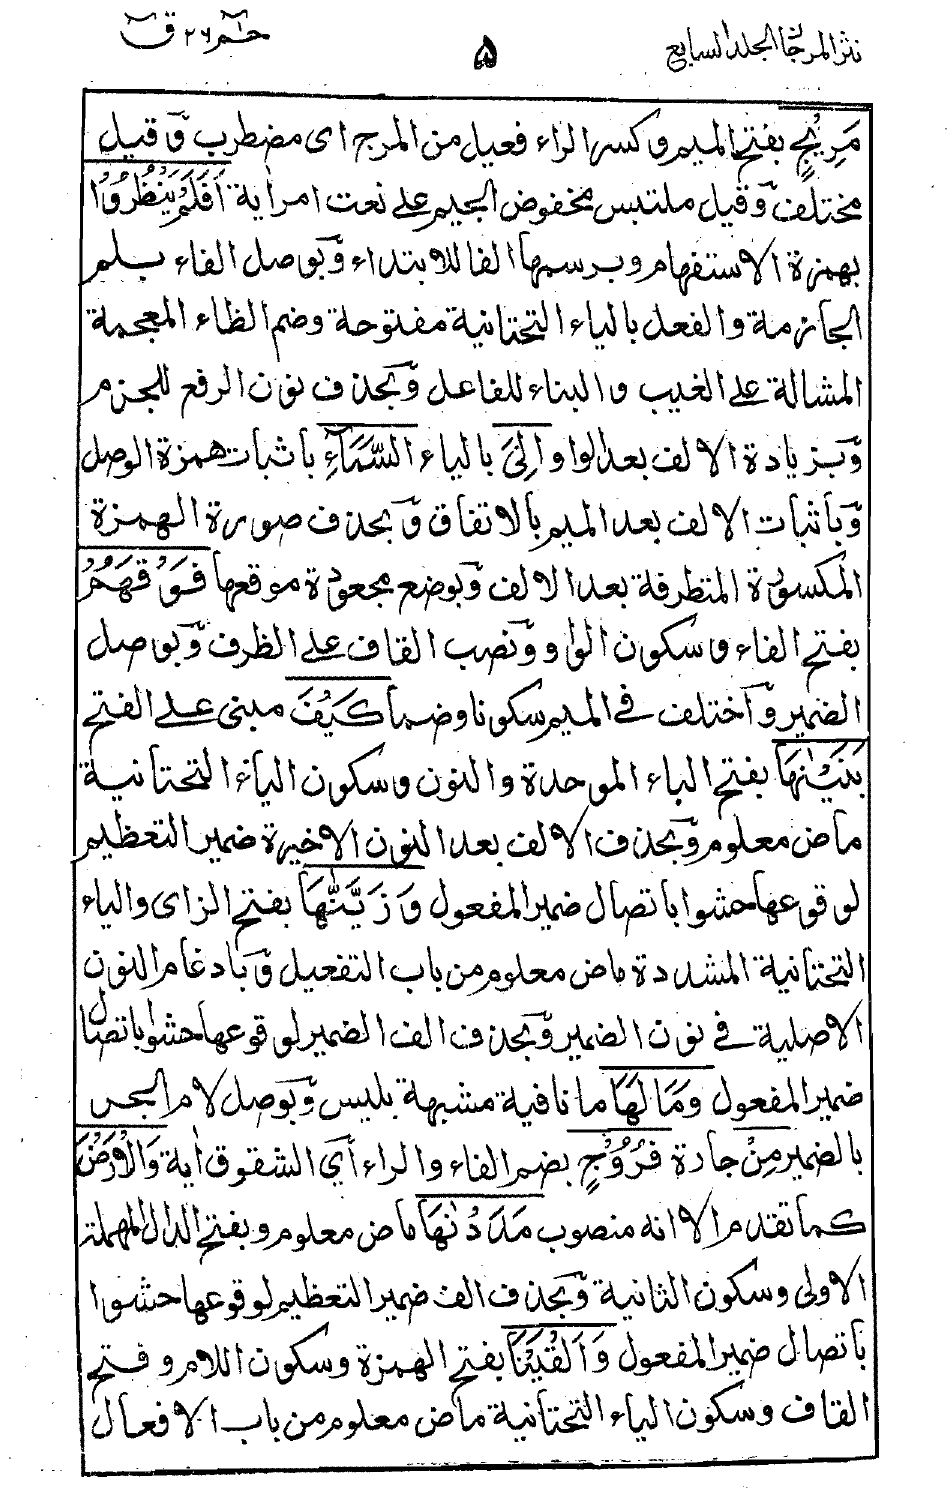 نثر المرجان الجلد السابع
۵
حٰم ۲۶ قٓ
مَرِيْجٍ بفتح الميم وكسر الراء فعيل من المرج اى مضطرب وَّ قيل
مختلف وَّقيل ملتبس مخفوض الجيم على نعت امر اٰية اَفَلَمْ يَنْظُرُوْٓا
بهمزة الاستفهام وبرسمها الفا للابتداء وَّبوصل الفاء بلم
الجازمة والفعل بالياء التحتانية مفتوحة وضم الظاء المعجمة
المشالة على الغيب والبناء للفاعل وَّبحذف نون الرفع للجزم
وَّبزيادة الالف بعد الواو اِلَى بالياء السَّمَآءِ باثبات همزة الوصل
وَّباثبات الالف بعد الميم بالاتفاق وَّبحذف صورة الهمزة
المكسورة المتطرفة بعد الالف وَّبوضع مجعودة موقعها فَوْقَهُمْ
بفتح الفاء وسكون الواو وَّنصب القاف على الظرف وَّبوصل
الضمير وَّاختلف فى الميم سكونا وضما كَيْفَ مبنى على الفتح
بَنَيْنٰهَا بفتح الباء الموحدة والنون وسكون الياء التحتانية
ماض معلوم وَّبحذف الالف بعد النون الاخيرة ضمير التعظيم
لوقوعها حشوا باتصال ضمير المفعول وَزَيَّنّٰهَا بفتح الزاى والياء
التحتانية المشددة ماض معلوم من باب التفعيل وَّبادغام النون
الاصلية فى نون الضمير وَّبحذف الف الضمير لوقوعها حشوا باتصال
ضمير المفعول وَمَا لَهَا ما نافية مشبهة بليس وَّبوصل لام الجر
بالضمير مِنْ جارة فُرُوْجٍ بضم الفاء والراء اَى الشقوق اٰية وَالْاَرْضَ
كما تقدم الا انه منصوب مَدَدْنٰهَا ماض معلوم وبفتح الدال المهملة
الاولى وسكون الثانية وَّبحذف الف ضمير التعظيم لوقوعها حشوا
باتصال ضمير المفعول وَاَلْقَيْنَا بفتح الهمزة وسكون اللام وفتح
القاف وسكون الياء التحتانية ماض معلوم من باب الافعال